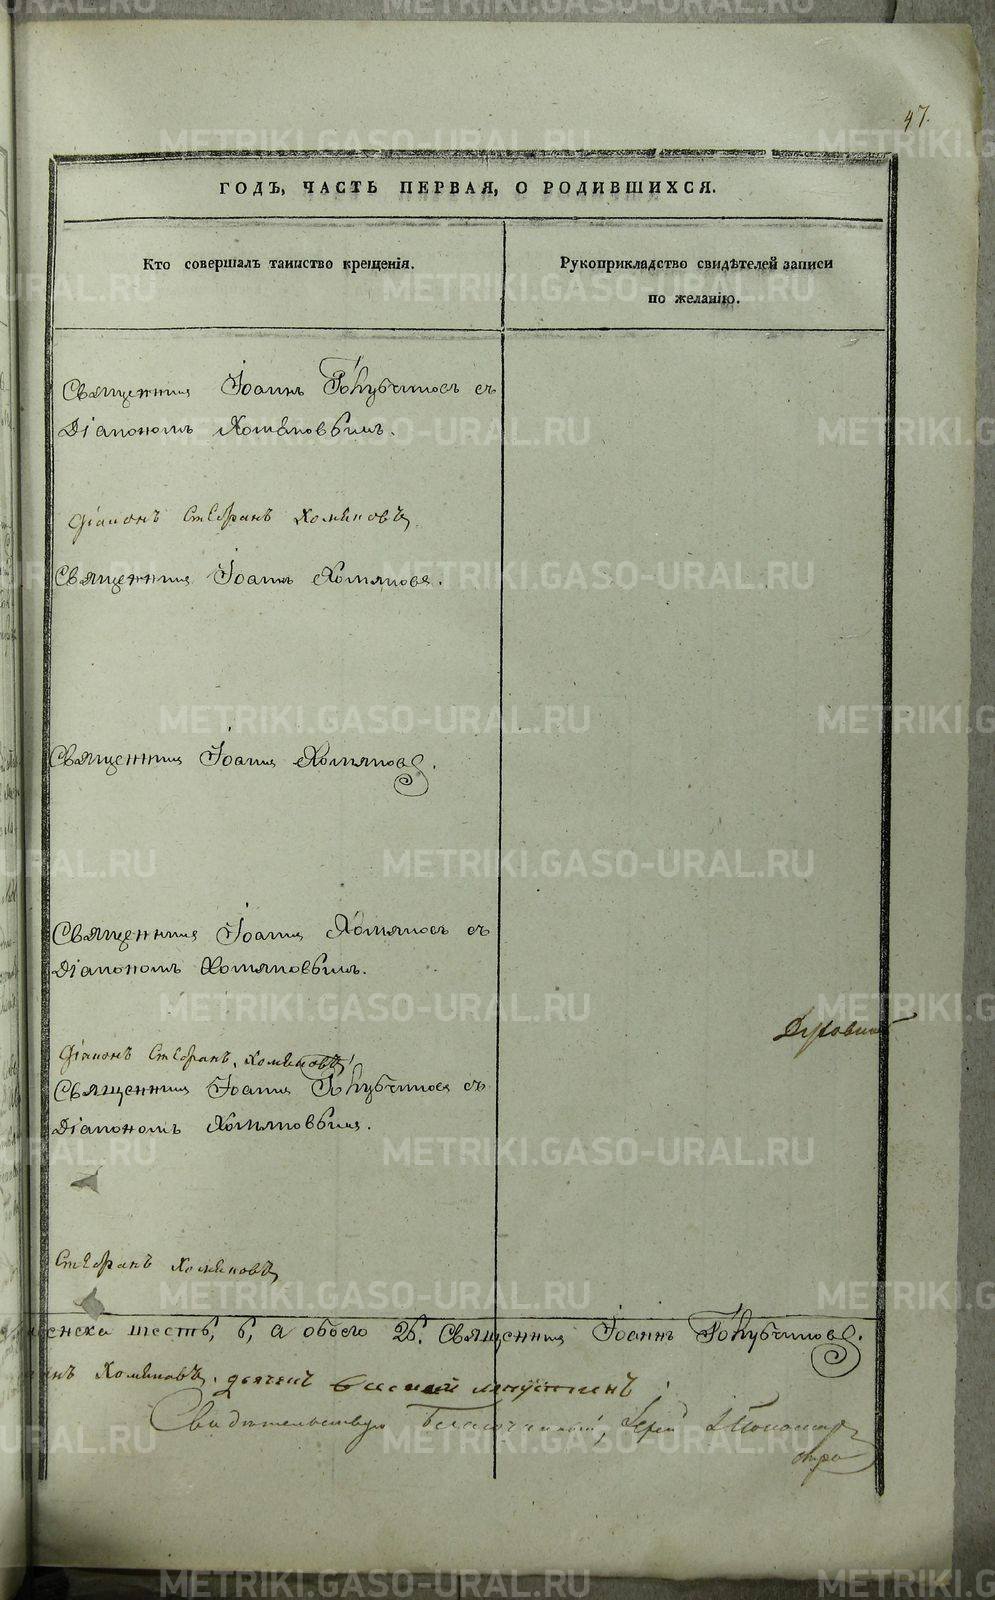 47.
ГОДЪ, ЧАСТЬ ПЕРВАЯ, О РОДИВШИХСЯ.
Кто совершалъ таинство крещенія.
Рукоприкладство свидѣтелей записи
по желанію.
Священникъ Іоаннъ Голубчиковъ съ
Діакономъ Хомяковымъ.
Діаконъ Стефанъ Хомяковъ
Священникъ Іоаннъ Хомяковъ.
Священникъ Іоаннъ Хомяковъ.
Священникъ Іоаннъ Хомяковъ съ
Діакономъ Хомяковымъ.
Діаконъ Стефанъ Хомяковъ
Священникъ Іоаннъ Голубчиковъ съ
Діакономъ Хомяковымъ.
Стефанъ Хомяковъ
женска шесть, 6, а обоего 26. Священникъ Іоаннъ Голубчиковъ.
анъ Хомяковъ. дьячекъ
Свидѣтельствую Благочинный, Іерей
METRIKI.GASO-URAL.RU